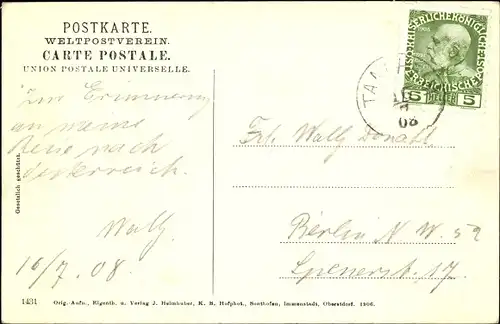 POSTKARTE.
WELTPOSTVEREIN.
CARTE POSTALE.
UNION POSTALE UNIVERSELLE.
KAISERLICHE KÖNIGLICHE
1908
REICHISCHE
5 HELLER 5
08
Zur Erinnerung
an meine
Reise nach
Österreich.
Wally
10/7. 08.
Frl. Wally Donath
Berlin N. W. 52
Spenerstr. 17.
Gesetzlich geschützt.
1431 Orig.-Aufn., Eigenth. u. Verlag J. Heimhuber, K. B. Hofphot., Sonthofen, Immenstadt, Oberstdorf. 1906.